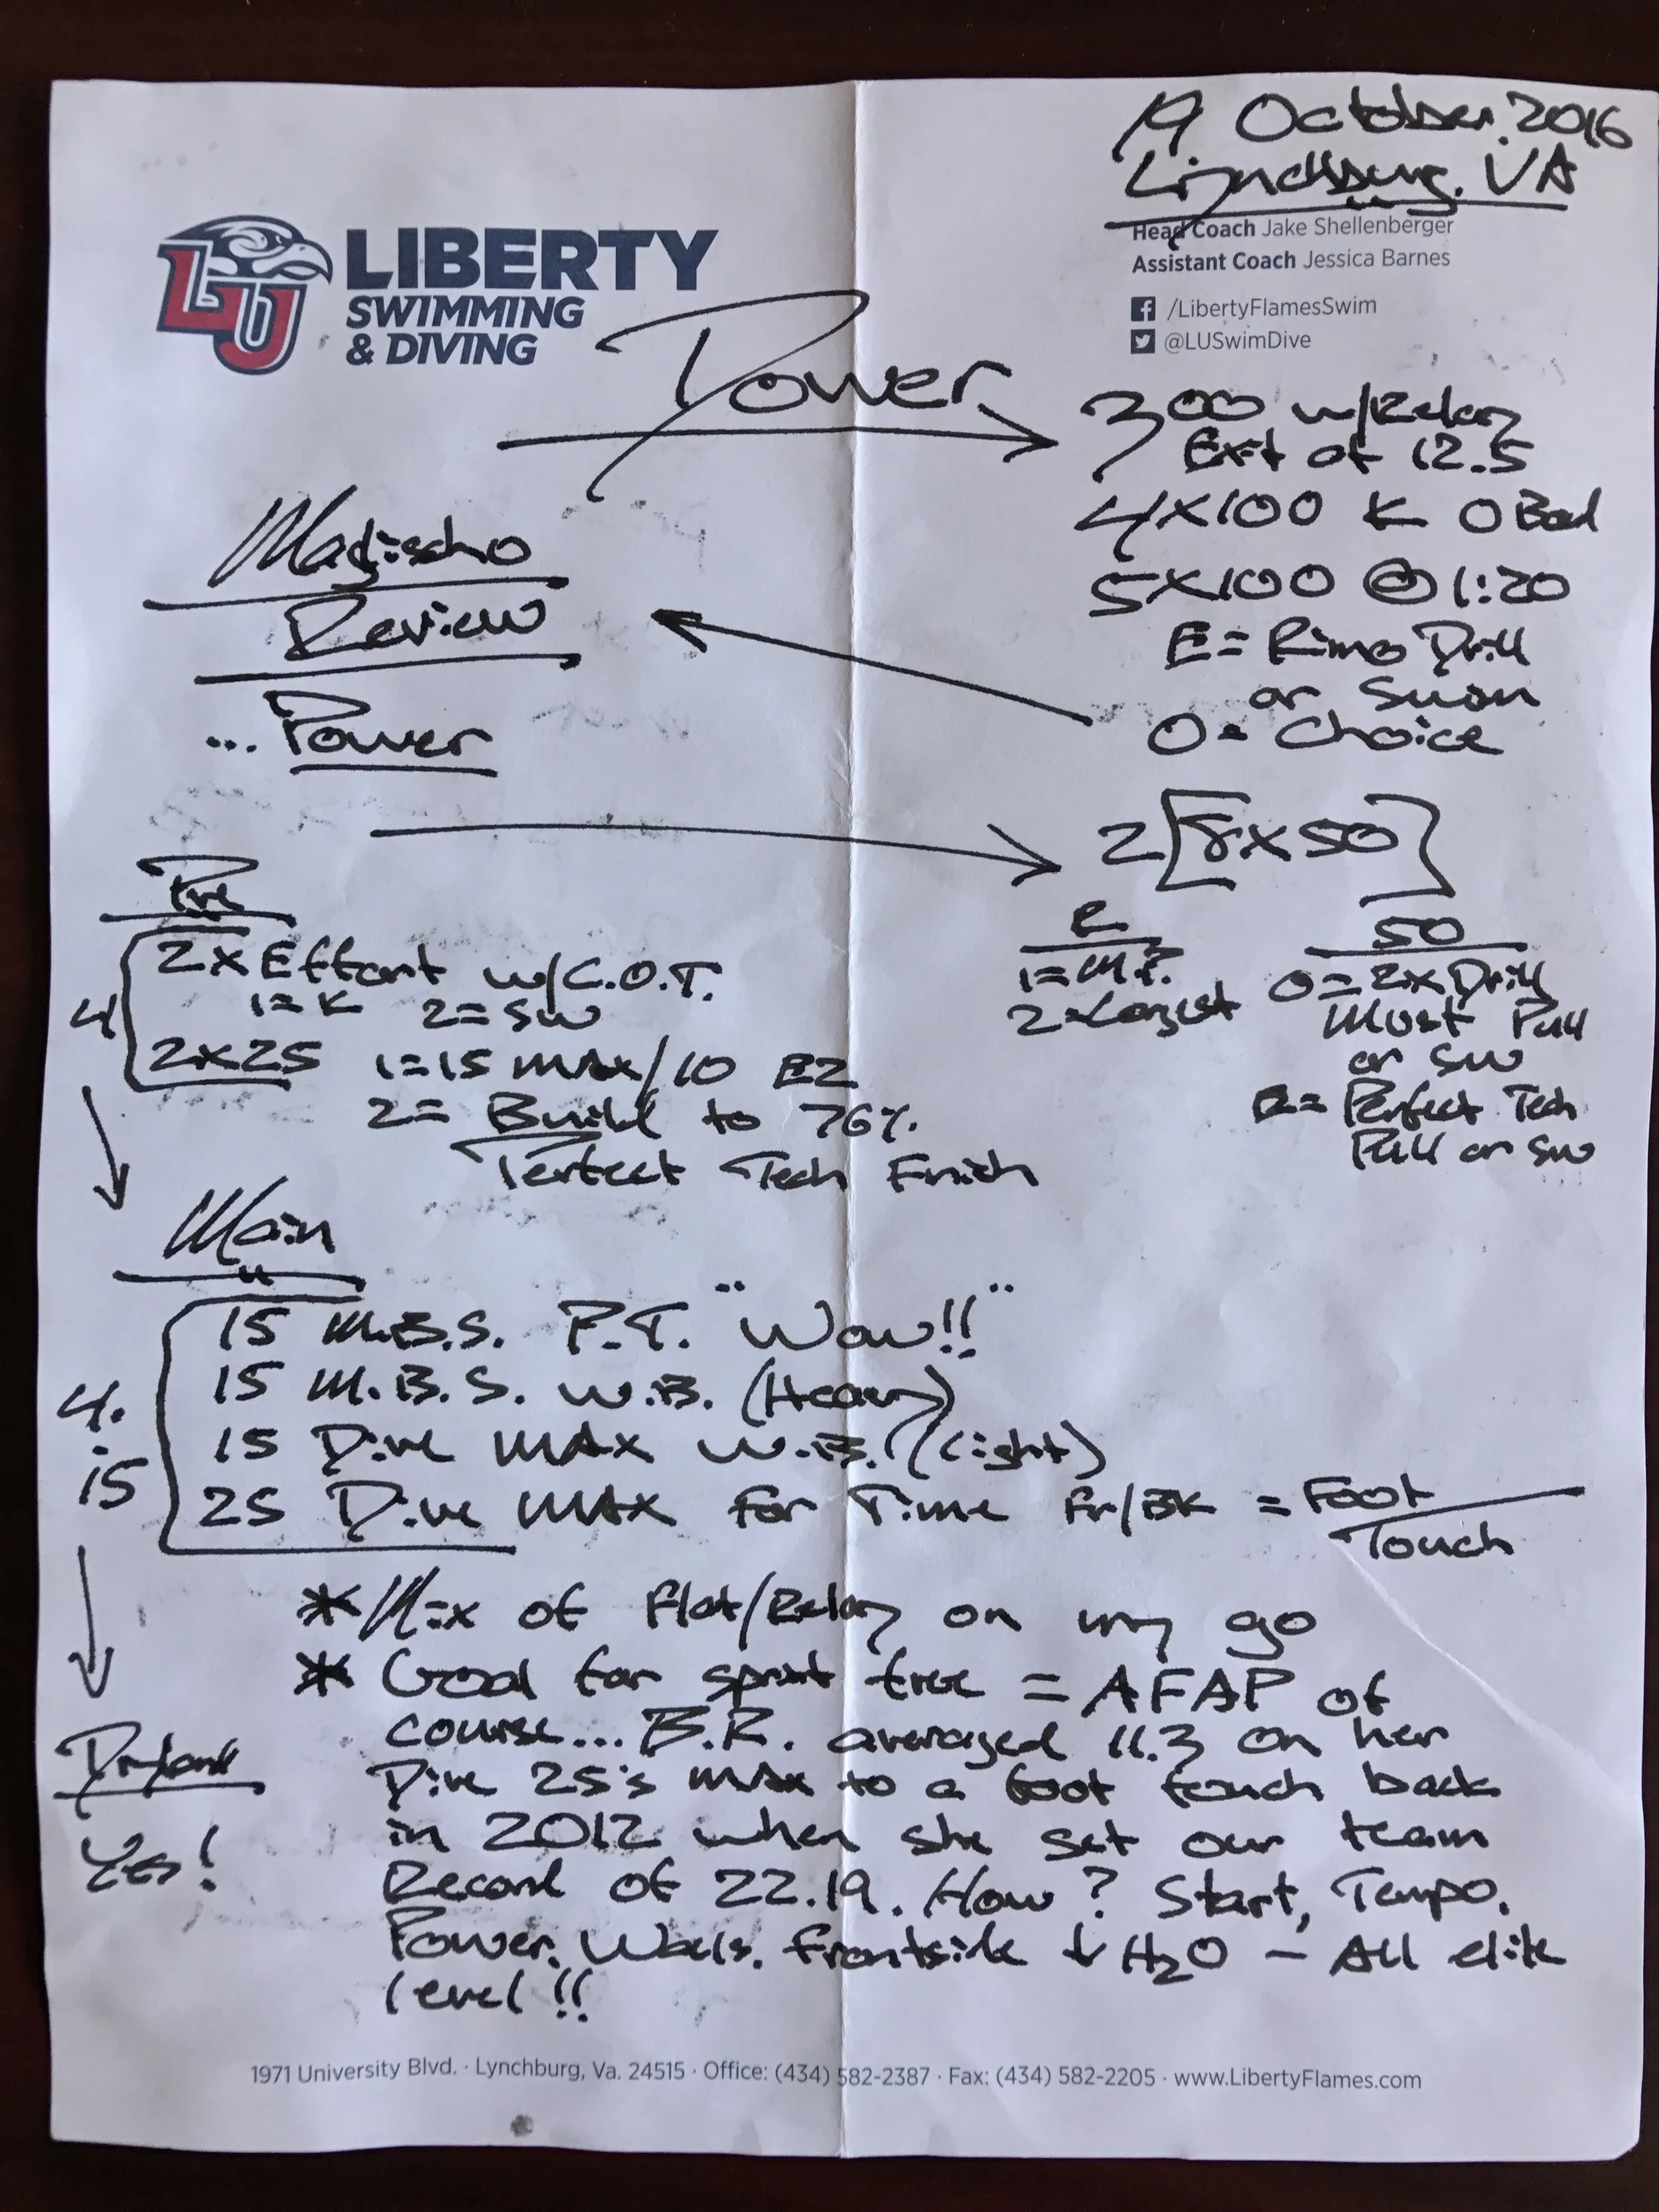 19 October, 2016
Lynchburg, VA
Head Coach Jake Shellenberger
Assistant Coach Jessica Barnes
/LibertyFlamesSwim
@LUSwimDive
LU
LIBERTY
SWIMMING
& DIVING
Power
300 w/Relay
Ext at 12.5
4x100 K O Bad
5x100 @ 1:20
E = Rimo Drill
or Swan
O = Choice
Magischo
Review
... Power
2[8x50]
R
1 = M.P.
2 = Longist
50
O = 2x Drill
Must Pull
or SW
E = Perfect Tech
Pull or SW
Pre
4
2x Effort w/C.O.T.
1 = K 2 = SW
2x25 1=15 MAX/10 EZ
2 = Build to 76%.
Perfect Tech Finish
Main
4.
is
15 M.B.S. P.T. "Wow!!"
15 M.B.S. W.B. (Heavy)
15 Dive MAX W.B. (Light)
25 Dive MAX for Time Fr/BK = Foot
Touch
* Mix of Flat/Relay on my go
* Goal for sprint free = AFAP of
course... B.R. averaged 11.3 on her
Dive 25's MAX to a foot touch back
in 2012 when she set our team
Record of 22.19. How? Start, Tempo,
Power, Walls, Frontside ↓ H2O - All elite
level!!
Dryland
Yes!
1971 University Blvd. · Lynchburg, Va. 24515 · Office: (434) 582-2387 · Fax: (434) 582-2205 · www.LibertyFlames.com